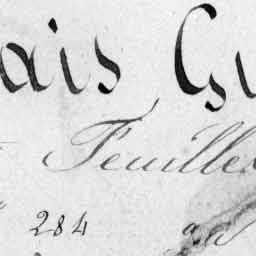 ais Gu
Feuille
284 au